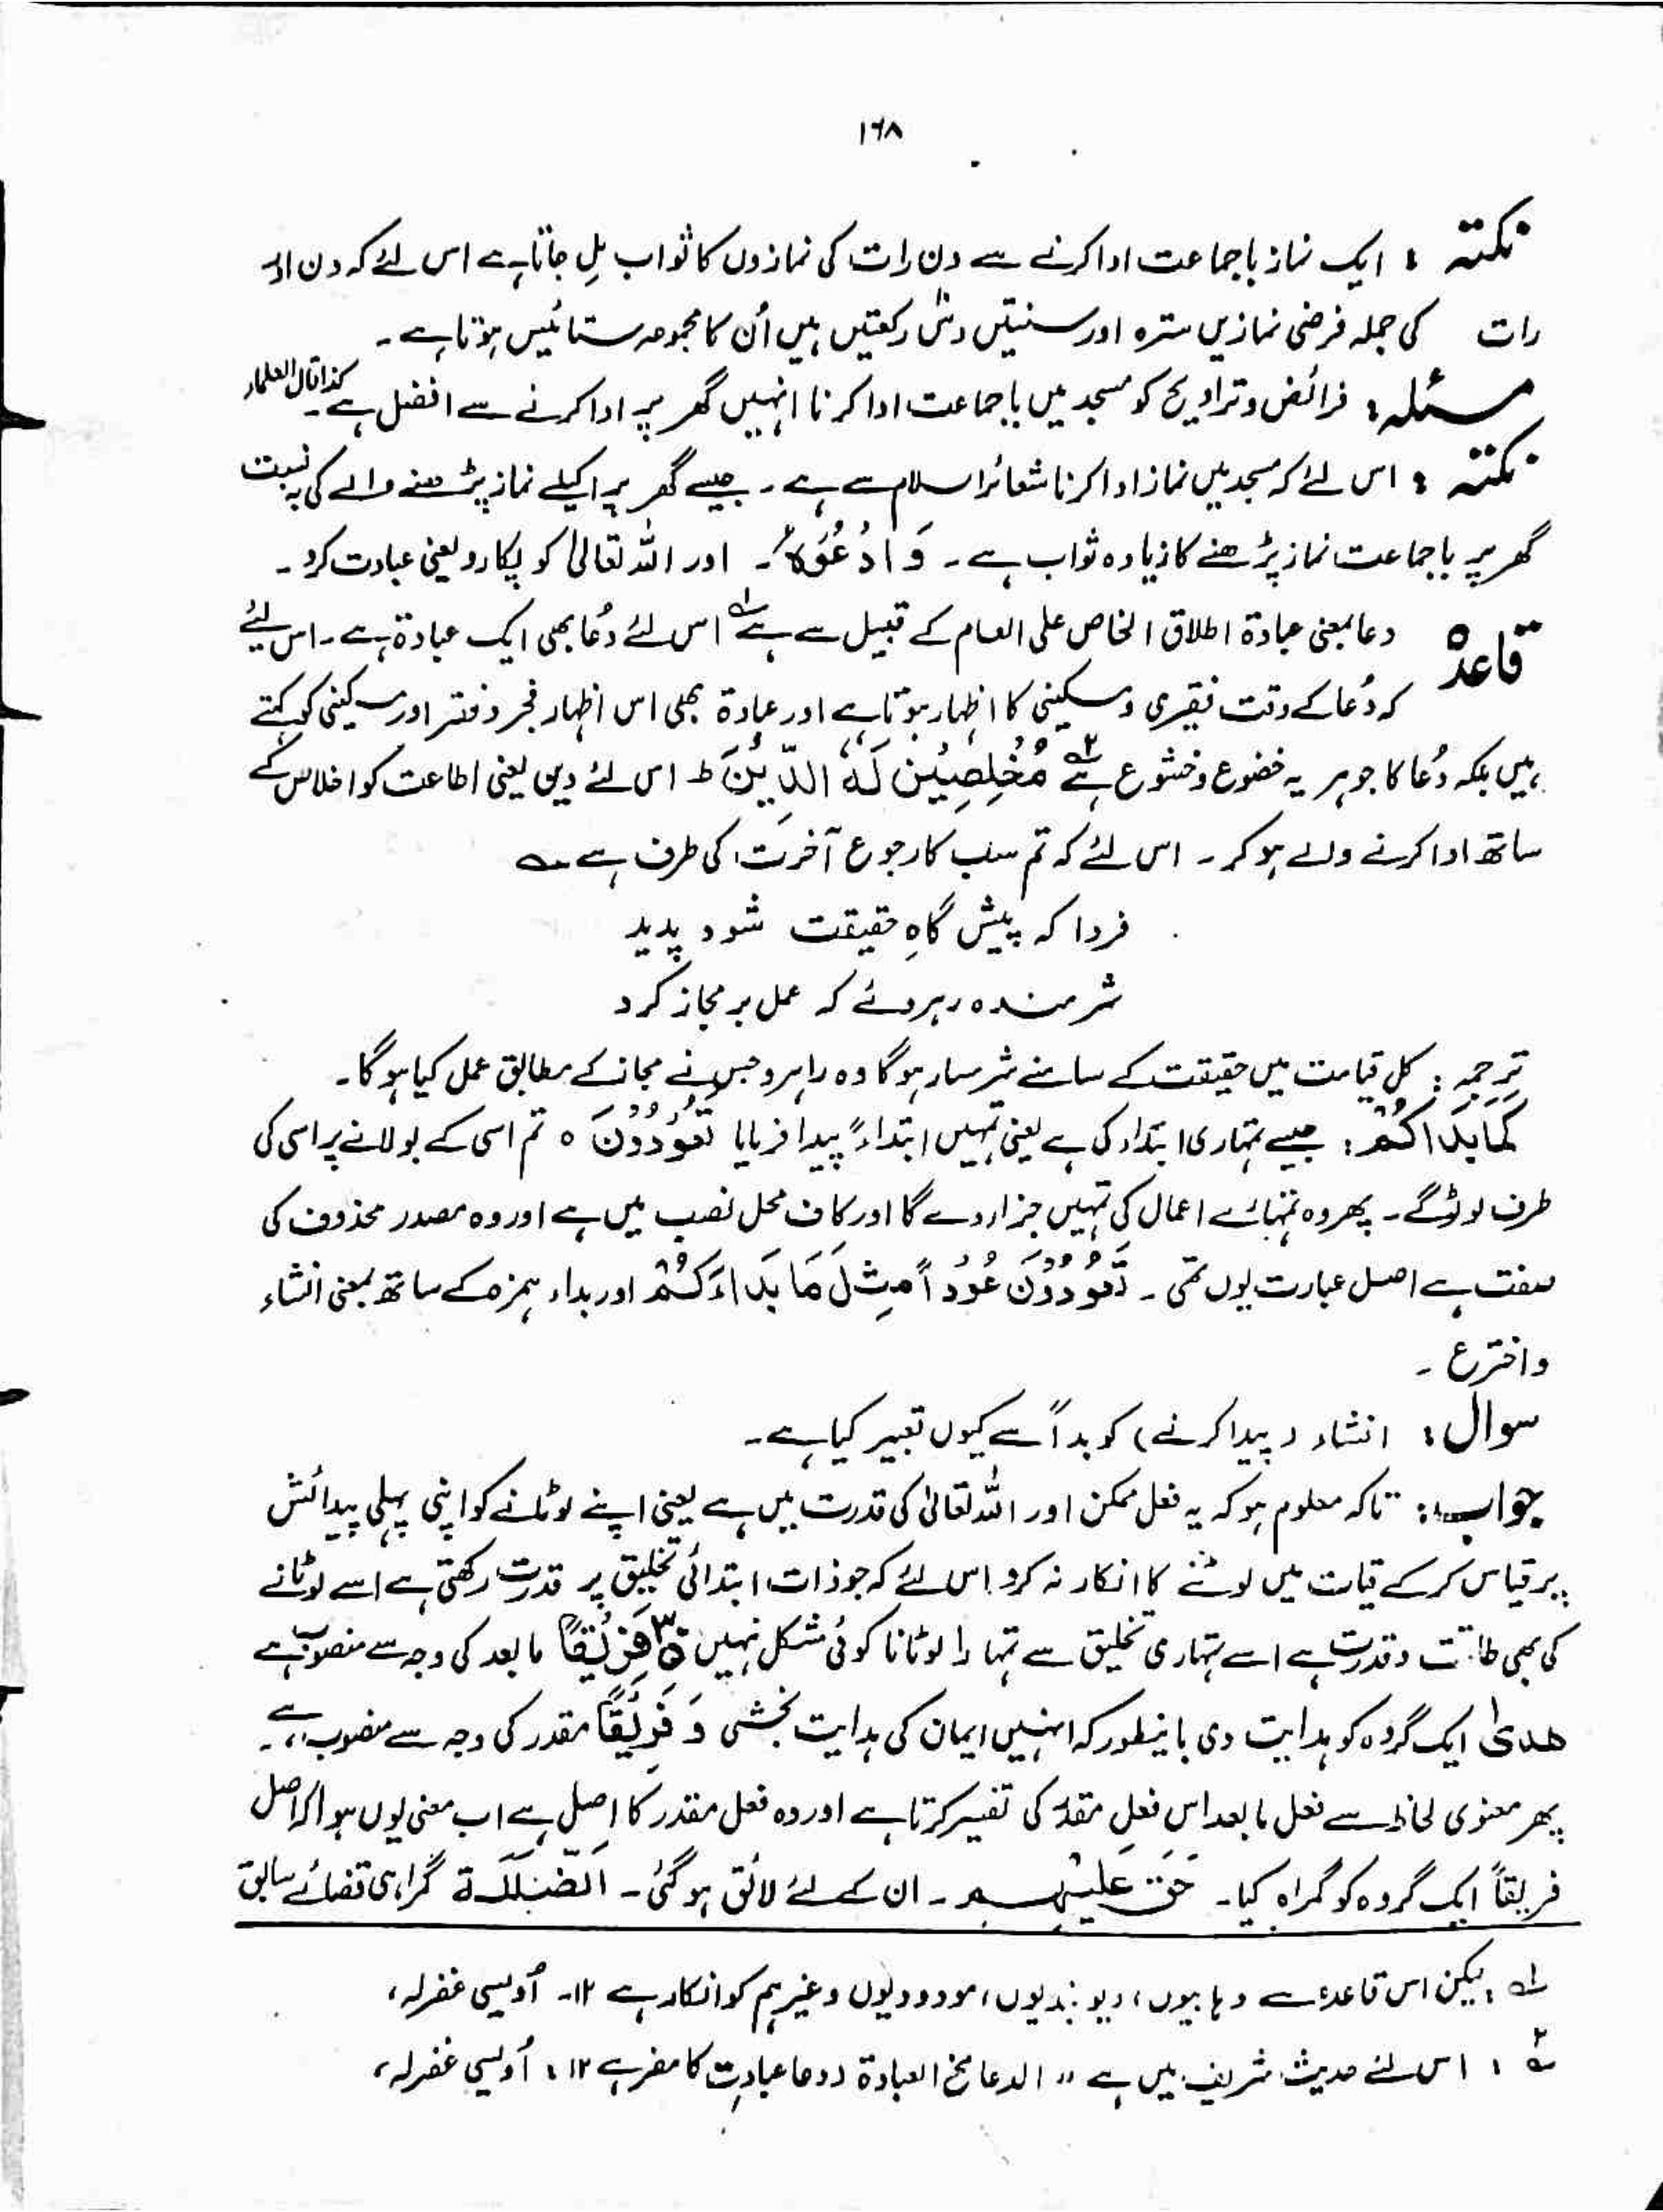 ۱۶۸
نکتہ : ایک نماز باجماعت ادا کرنے سے دن رات کی نمازوں کا ثواب مل جاتا ہے اس لئے کہ دن اور
رات کی جملہ فرضی نمازیں سترہ اور سنتیں دس رکعتیں ہیں اُن کا مجموعہ ستائیس ہوتا ہے ۔
مسئلہ : فرائض و تراویح کو مسجد میں باجماعت ادا کرنا انہیں گھر پر ادا کرنے سے افضل ہے ۔ کذا قال العلماء
نکتہ : اس لئے کہ مسجد میں نماز ادا کرنا شعائر اسلام سے ہے ۔ جیسے گھر پر اکیلے نماز پڑھنے والے کی بہ نسبت
گھر پر باجماعت نماز پڑھنے کا زیادہ ثواب ہے ۔ وَادْعُوْہُ ۔ اور اللہ تعالیٰ کو پکارو یعنی عبادت کرو ۔
قاعدہ دعا بمعنی عبادۃ اطلاق الخاص علی العام کے قبیل سے ہے ۱؎ اس لئے دُعا بھی ایک عبادۃ ہے ۔ اس لئے
کہ دُعا کے وقت فقیری و مسکینی کا اظہار ہوتا ہے اور عبادۃ بھی اس اظہار فجر و فقر اور مسکینی کو کہتے
ہیں بلکہ دُعا کا جوہر یہ خضوع و خشوع ہے ۲؎ مُخْلِصِیْنَ لَہُ الدِّیْنَ ط اس لئے دین یعنی اطاعت کو اخلاص کے
ساتھ ادا کرنے والے ہو کر ۔ اس لئے کہ تم سب کا رجوع آخرت کی طرف ہے ؎
فردا کہ پیش گاہِ حقیقت شود پدید
شرمندہ رہروے کہ عمل بر مجاز کرد
ترجمہ : کل قیامت میں حقیقت کے سامنے شرمسار ہو گا وہ راہرو جس نے مجاز کے مطابق عمل کیا ہو گا ۔
کَمَا بَدَاَکُمْ : جیسے تمہاری ابتداء کی ہے یعنی تمہیں ابتداءً پیدا فرمایا تَعُوْدُوْنَ ہ تم اسی کے بو لانے پر اسی کی
طرف لوٹو گے ۔ پھر وہ تمہارے اعمال کی تمہیں جزاء دے گا اور کاف محل نصب میں ہے اور وہ مصدر محذوف کی
صفت ہے اصل عبارت یوں تھی ۔ تَعُوْدُوْنَ عُوْدًا مِثْلَ مَا بَدَاءَکُمْ اور بداء ہمزہ کے ساتھ بمعنی انشاء
و اخترع ۔
سوال : انشاء ( پیدا کرنے ) کو بدأً سے کیوں تعبیر کیا ہے ۔
جواب : تاکہ معلوم ہو کہ یہ فعل ممکن اور اللہ تعالیٰ کی قدرت میں ہے یعنی اپنے لوٹانے کو اپنی پہلی پیدائش
پر قیاس کر کے قیامت میں لوٹنے کا انکار نہ کرو اس لئے کہ جو ذات ابتدائی تخلیق پر قدرت رکھتی ہے اسے لوٹانے
کی بھی طاقت و قدرت ہے اسے تمہاری تخلیق سے تمہارا لوٹانا کوئی مشکل نہیں فَرِیْقًا ما بعد کی وجہ سے منصوب ہے
ھدیٰ ایک گروہ کو ہدایت دی بایں طور کہ انہیں ایمان کی ہدایت بخشی وَ فَرِیْقًا مقدر کی وجہ سے منصوب ہے ۔
پھر معنوی لحاظ سے فعل ما بعد اس فعلِ مقدر کی تفسیر کرتا ہے اور وہ فعل مقدر کا اصل ہے اب معنی یوں ہوا کہ اصل
فریقاً ایک گروہ کو گمراہ کیا ۔ حَقَّ عَلَیْہِم ۔ ان کے لئے لائق ہو گئی ۔ الضَّلٰلَۃ گمراہی قضائے سابق
۱؎ : لیکن اس قاعدہ سے وہابیوں ، دیوبندیوں ، مودودیوں وغیرہم کو انکار ہے ۱۲ ۔ اُویسی غفرلہ ،
۲؎ : اس لئے حدیث شریف میں ہے " الدعا مخ العبادۃ ( دعا عبادت کا مغز ہے ۱۲ : اُویسی غفرلہ ،